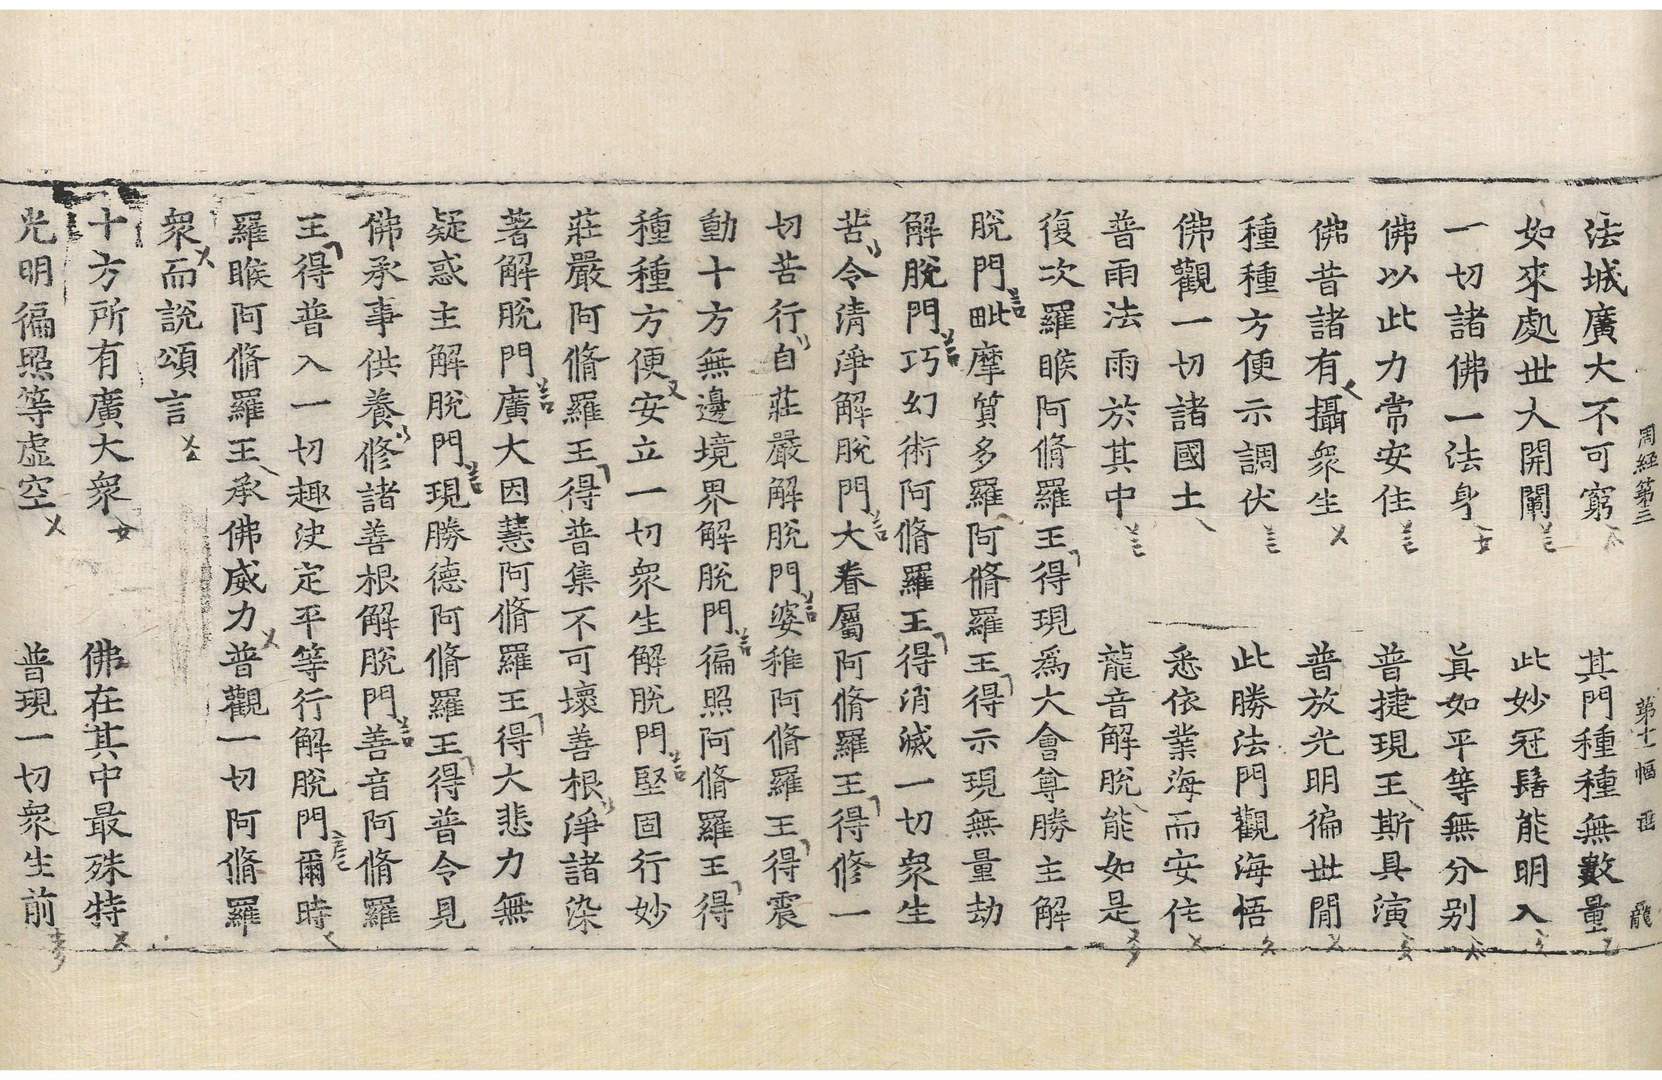 周經第三 第十幅 龍
法城廣大不可窮 其門種種無數量
如來處世大開闡 此妙冠髻能明入
一切諸佛一法身 眞如平等無分别
佛以此力常安住 普捷現王斯具演
佛昔諸有攝衆生 普放光明徧世閒
種種方便示調伏 此勝法門觀海悟
佛觀一切諸國土 悉依業海而安住
普雨法雨於其中 龍音解脫能如是
復次羅睺阿脩羅王得現爲大會尊勝主解
脫門毗摩質多羅阿脩羅王得示現無量劫
解脫門巧幻術阿脩羅王得消滅一切衆生
苦令清淨解脫門大眷屬阿脩羅王得修一
切苦行自莊嚴解脫門婆稚阿脩羅王得震
動十方無邊境界解脫門徧照阿脩羅王得
種種方便安立一切衆生解脫門堅固行妙
莊嚴阿脩羅王得普集不可壞善根淨諸染
著解脫門廣大因慧阿脩羅王得大悲力無
疑惑主解脫門現勝德阿脩羅王得普令見
佛承事供養修諸善根解脫門善音阿脩羅
王得普入一切趣決定平等行解脫門爾時
羅睺阿脩羅王承佛威力普觀一切阿脩羅
衆而說頌言
十方所有廣大衆 佛在其中最殊特
光明徧照等虛空 普現一切衆生前